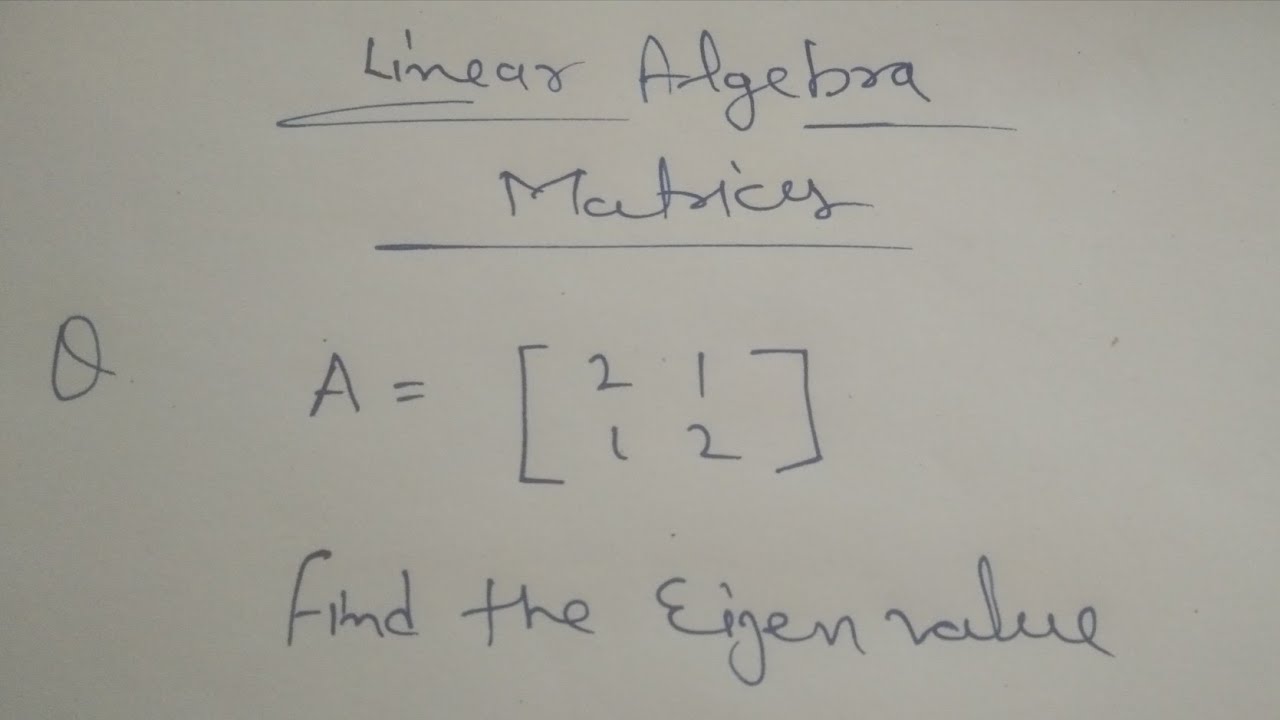 Linear Algebra
Matrices
Q A = [ 2 1
1 2 ]
Find the Eigen value